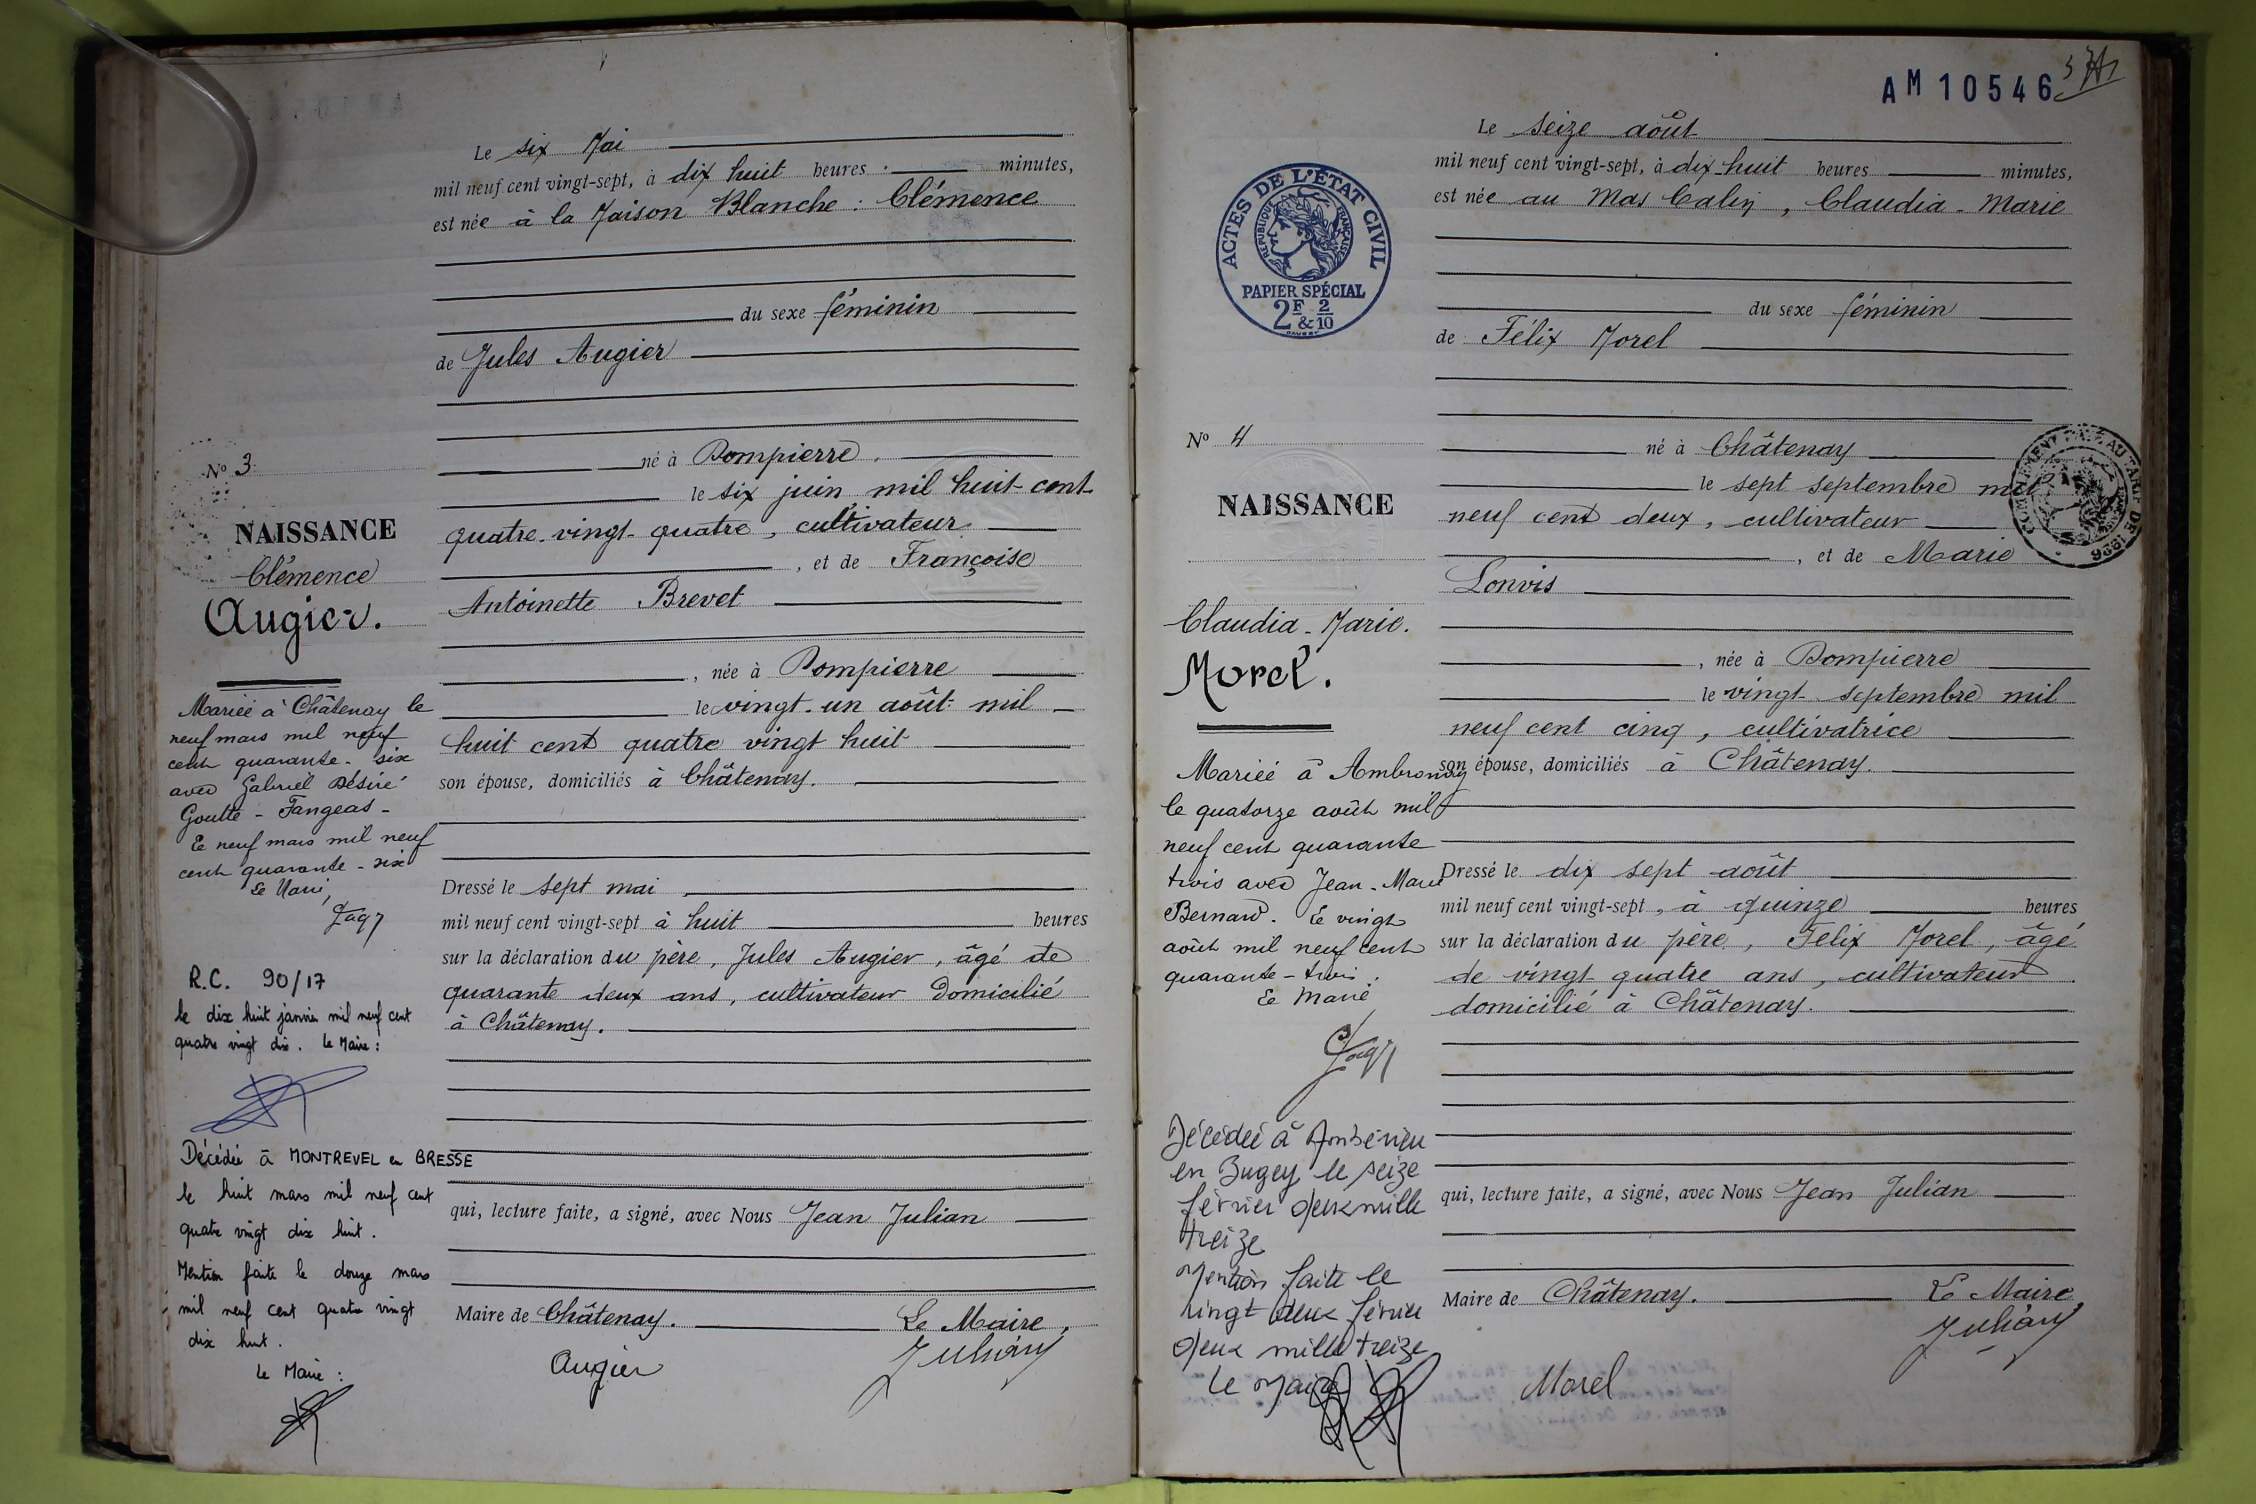 Le six Mai
mil neuf cent vingt-sept, à dix huit heures minutes,
est née à la Maison Blanche : Clémence
du sexe féminin
de Jules Augier
né à Dompierre
le six juin mil huit cent
quatre-vingt-quatre, cultivateur
, et de Françoise
Antoinette Brevet
, née à Dompierre
le vingt-un août mil
huit cent quatre vingt huit
son épouse, domiciliés à Châtenay.
Dressé le sept mai
mil neuf cent vingt-sept à huit heures
sur la déclaration du père, Jules Augier, âgé de
quarante deux ans, cultivateur domicilié
à Châtenay.
qui, lecture faite, a signé, avec Nous Jean Julian
Maire de Châtenay. Le Maire,
Augier Julian
No 3
NAISSANCE
Clémence
Augier.
Mariée à Châtenay le
neuf mars mil neuf
cent quarante-six
avec Gabriel Désiré
Goutte-Fangeas-
Le neuf mars mil neuf
cent quarante-six
Le Maire,
R.C. 90/17
le dix huit janvier mil neuf cent
quatre vingt dix. Le Maire :
Décédée à MONTREVEL en BRESSE
le huit mars mil neuf cent
quatre vingt dix huit.
Mention faite le douze mars
mil neuf cent quatre vingt
dix huit.
Le Maire :
AM 10546
Le seize août
mil neuf cent vingt-sept, à dix-huit heures minutes,
est née au Mas Calin, Claudia-Marie
du sexe féminin
de Félix Morel
né à Châtenay
le sept septembre mil
neuf cent deux, cultivateur
, et de Marie
Lonvis
, née à Dompierre
le vingt septembre mil
neuf cent cinq, cultivatrice
son épouse, domiciliés à Châtenay.
Dressé le dix sept août
mil neuf cent vingt-sept, à quinze heures
sur la déclaration du père, Félix Morel, âgé
de vingt quatre ans, cultivateur
domicilié à Châtenay.
qui, lecture faite, a signé, avec Nous Jean Julian
Maire de Châtenay. Le Maire
Julian
Morel
ACTES DE L'ÉTAT CIVIL
RÉPUBLIQUE FRANÇAISE
PAPIER SPÉCIAL
2F & 2/10
No 4
NAISSANCE
Claudia-Marie.
Morel.
Mariée à Ambronay
le quatorze août mil
neuf cent quarante
trois avec Jean-Marie
Bernard. Le vingt
août mil neuf cent
quarante-trois.
Le Maire
Décédée à Ambérieu
en Bugey le seize
février deux mille
treize
Mention faite le
vingt deux février
deux mille treize
Le Maire
COMPLÉMENT PAYÉ AU TARIF DE 1926